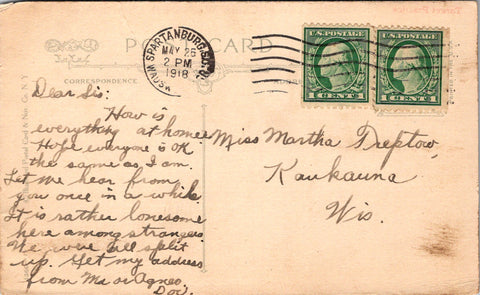 POST CARD
SPARTANBURG, S.C.
MAY 26
2 PM
1918
U.S. POSTAGE
1 CENTS 1
U.S. POSTAGE
1 CENTS 1
CORRESPONDENCE
Dear Sis:
How is
everything at home
Hope everyone is OK
the same as I am.
Let me hear from
you once in a while.
It is rather lonesome
here among strangers
We were all split
up. Get my address
from Ma or Agnes
Miss Martha Treptow,
Kaukauna
Wis.